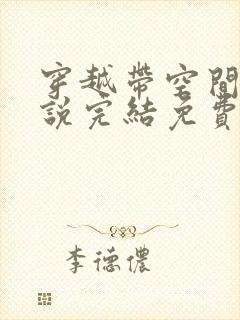 穿越帶空間
說完結免費
李德儂